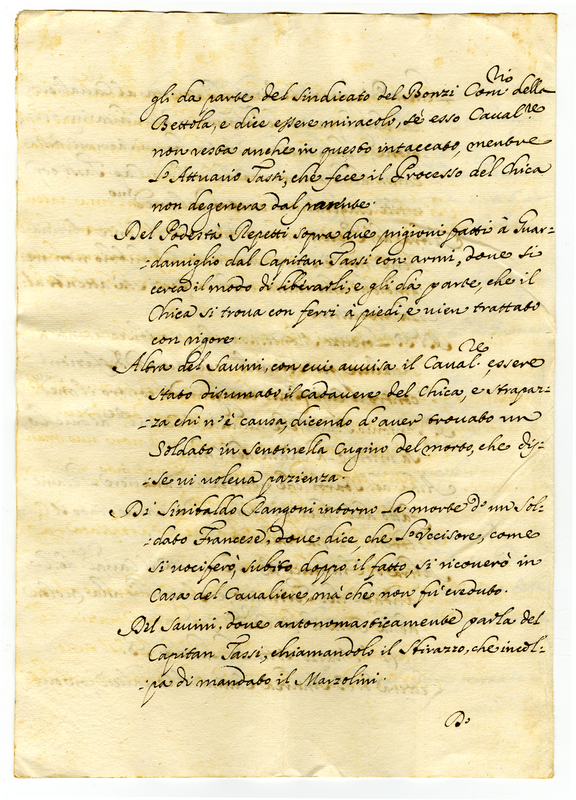 gli da parte del sindicato del Bonzi Com.rio della
Bettola, e dice essere miracolo, se esso Caval.re
non resta anche in questo intaccato, mentre
l'Attuario Tassi, che fece il Processo del Chica
non degenera dal parente.
Del Podestà Repetti sopra due prigioni fatti à Guar=
=damiglio dal Capitan Tassi con armi, dove si
cerca il modo di liberarli, e gli dà parte, che il
Chica si trova con ferri à piedi, e vien trattato
con rigore.
Altra del Savini, con cui avvisa il Caval.re essere
stato disumato il cadavere del Chica, e strapaz=
=za chi n'è causa, dicendo d'aver trovato un
Soldato in sentinella Cugino del morto, che dis=
=se vi voleva pazienza.
Di Sinibaldo Rangoni intorno la morte d'un Sol=
=dato Francese, dove dice che l'Uccisore, come
si vociferò, subito doppo il fatto, si ricoverò in
Casa del Cavaliere, mà che non fù creduto.
Del Savini, dove antonomasticamente parla del
Capitan Tassi, chiamandolo il Stirazzo, che incol=
=pa di mandato il Marzolini.